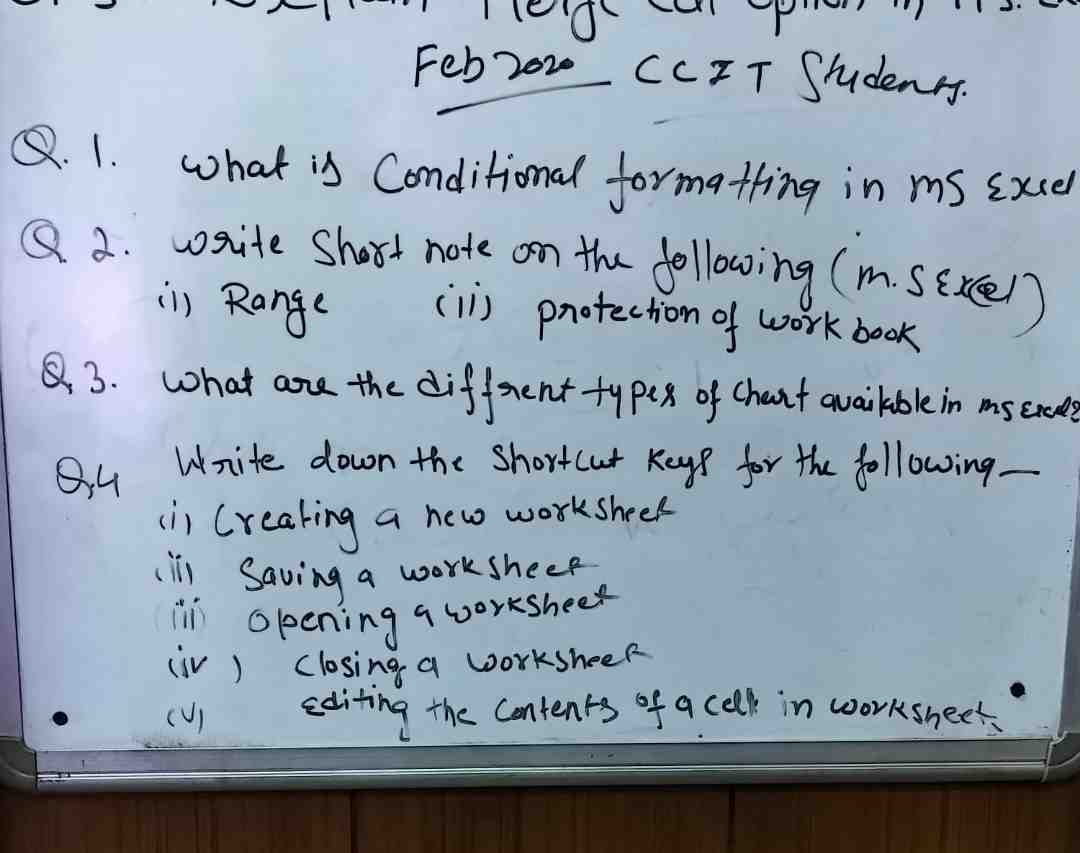 Explain Merge Cell option in M.S.
Feb 2020 CCIT Students.
Q. 1. what is Conditional formatting in ms Excel
Q 2. write short note on the following (m.s Excel)
(i) Range (ii) protection of work book
Q 3. what are the diffrent types of chart available in ms Excel?
Q.4 Write down the Shortcut Keys for the following—
(i) Creating a new worksheet
(ii) Saving a worksheet
(iii) Opening a worksheet
(iv) Closing a worksheet
(v) Editing the Contents of a cell in worksheet.